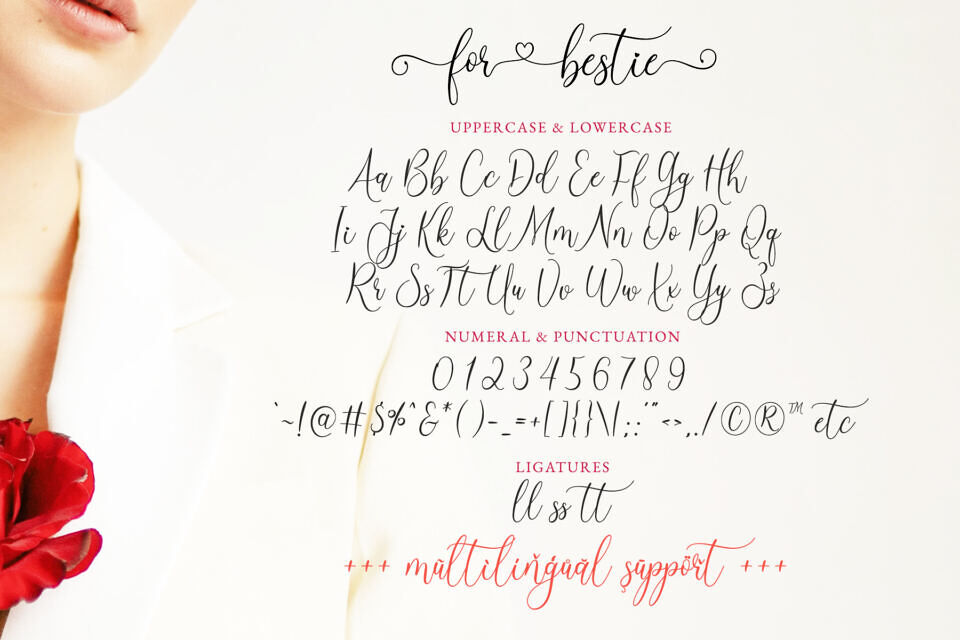 for bestie
UPPERCASE & LOWERCASE
Aa Bb Cc Dd Ee Ff Gg Hh
Ii Jj Kk Ll Mm Nn Oo Pp Qq
Rr Ss Tt Uu Vv Ww Xx Yy Zz
NUMERAL & PUNCTUATION
0 1 2 3 4 5 6 7 8 9
`~!@#$%^&*()-_=+[]{}\|;:'"<>,./©®™ etc
LIGATURES
ll ss tt
+++ mũltilıňġůăl şūppöřt +++